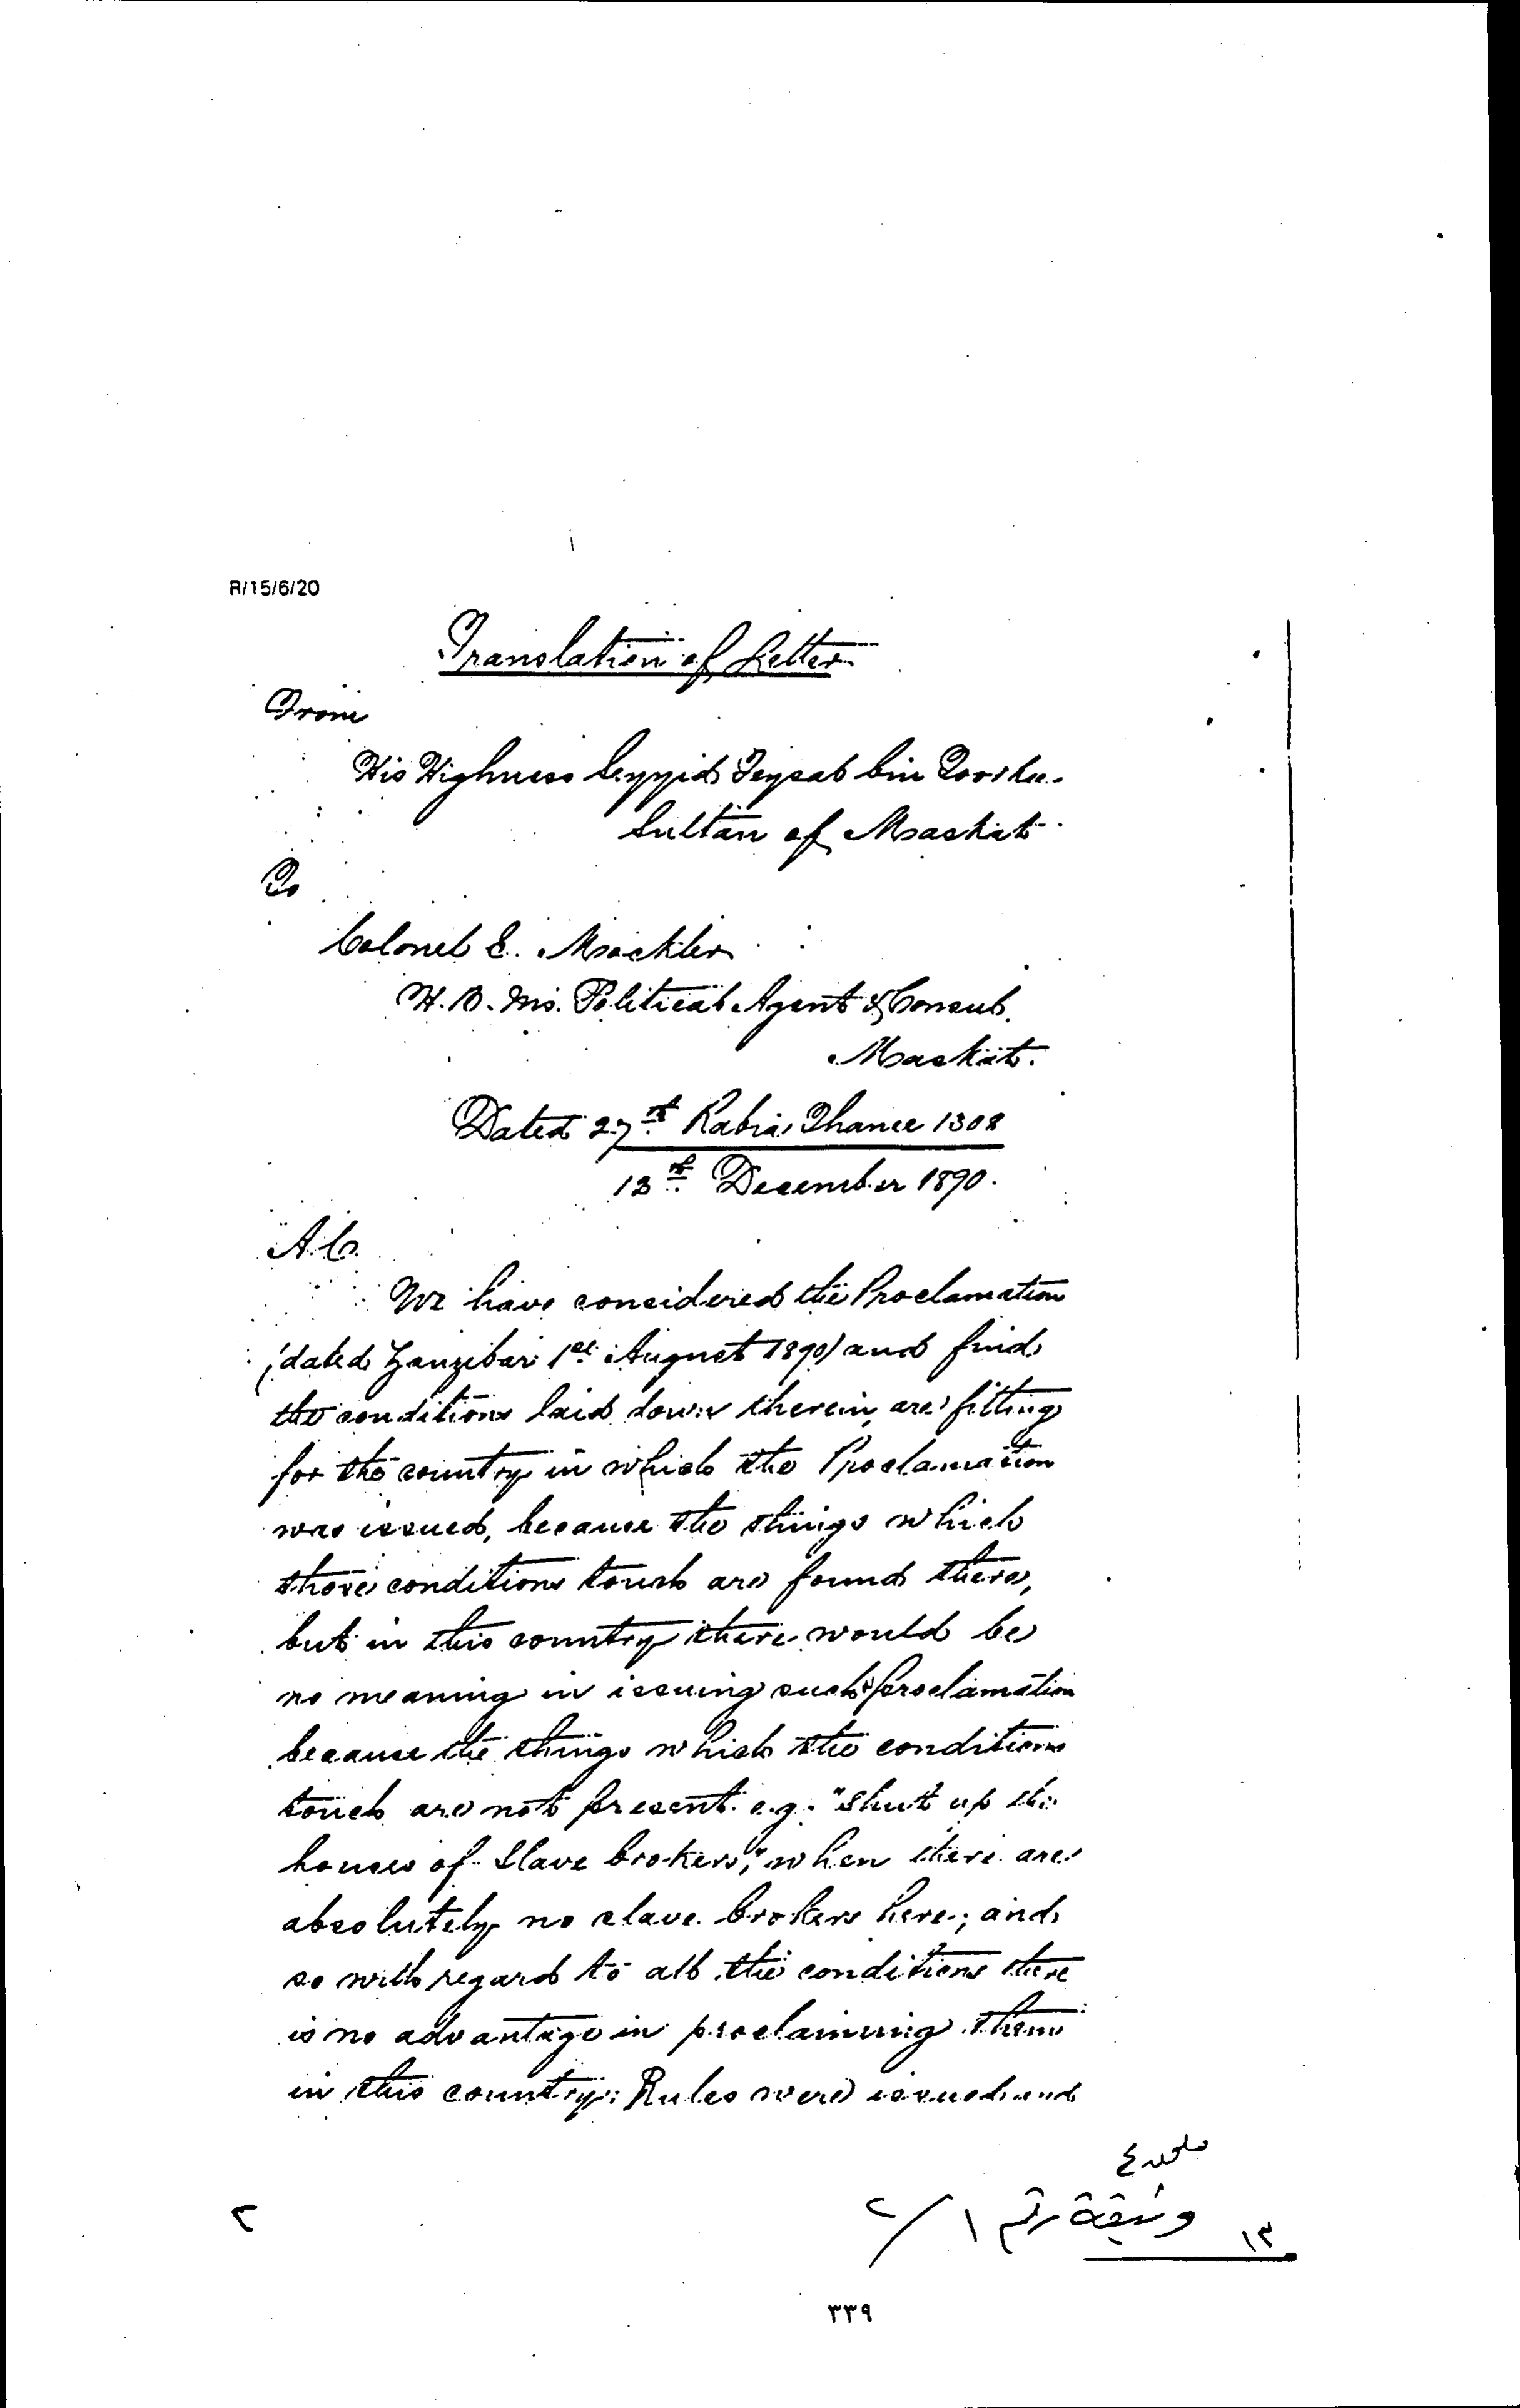 R/15/6/20
Translation of Letter
From
His Highness Seyyid Feysal bin Toorkee
Sultan of Maskat
To
Colonel E. Mockler
H.B.Ms. Political Agent & Consul.
Maskat.
Dated 27th Rabia Thanee 1308
12th December 1890.
A.C.
We have considered the Proclamation
(dated Zanzibar 1st August 1890) and find
the conditions laid down therein, are fitting
for the country in which the Proclamation
was issued, because the things which
those conditions touch are found there,
but in this country there would be
no meaning in issuing such proclamation
because the things which the conditions
touch are not present. e.g. "Shut up the
houses of Slave brokers," when there are
absolutely no slave brokers here; and
so with regard to all the conditions there
is no advantage in proclaiming them
in this country: Rules were issued and
ملحق ٤
وثيقة رقم ١ / ٢
١٣
٢
٣٣٩